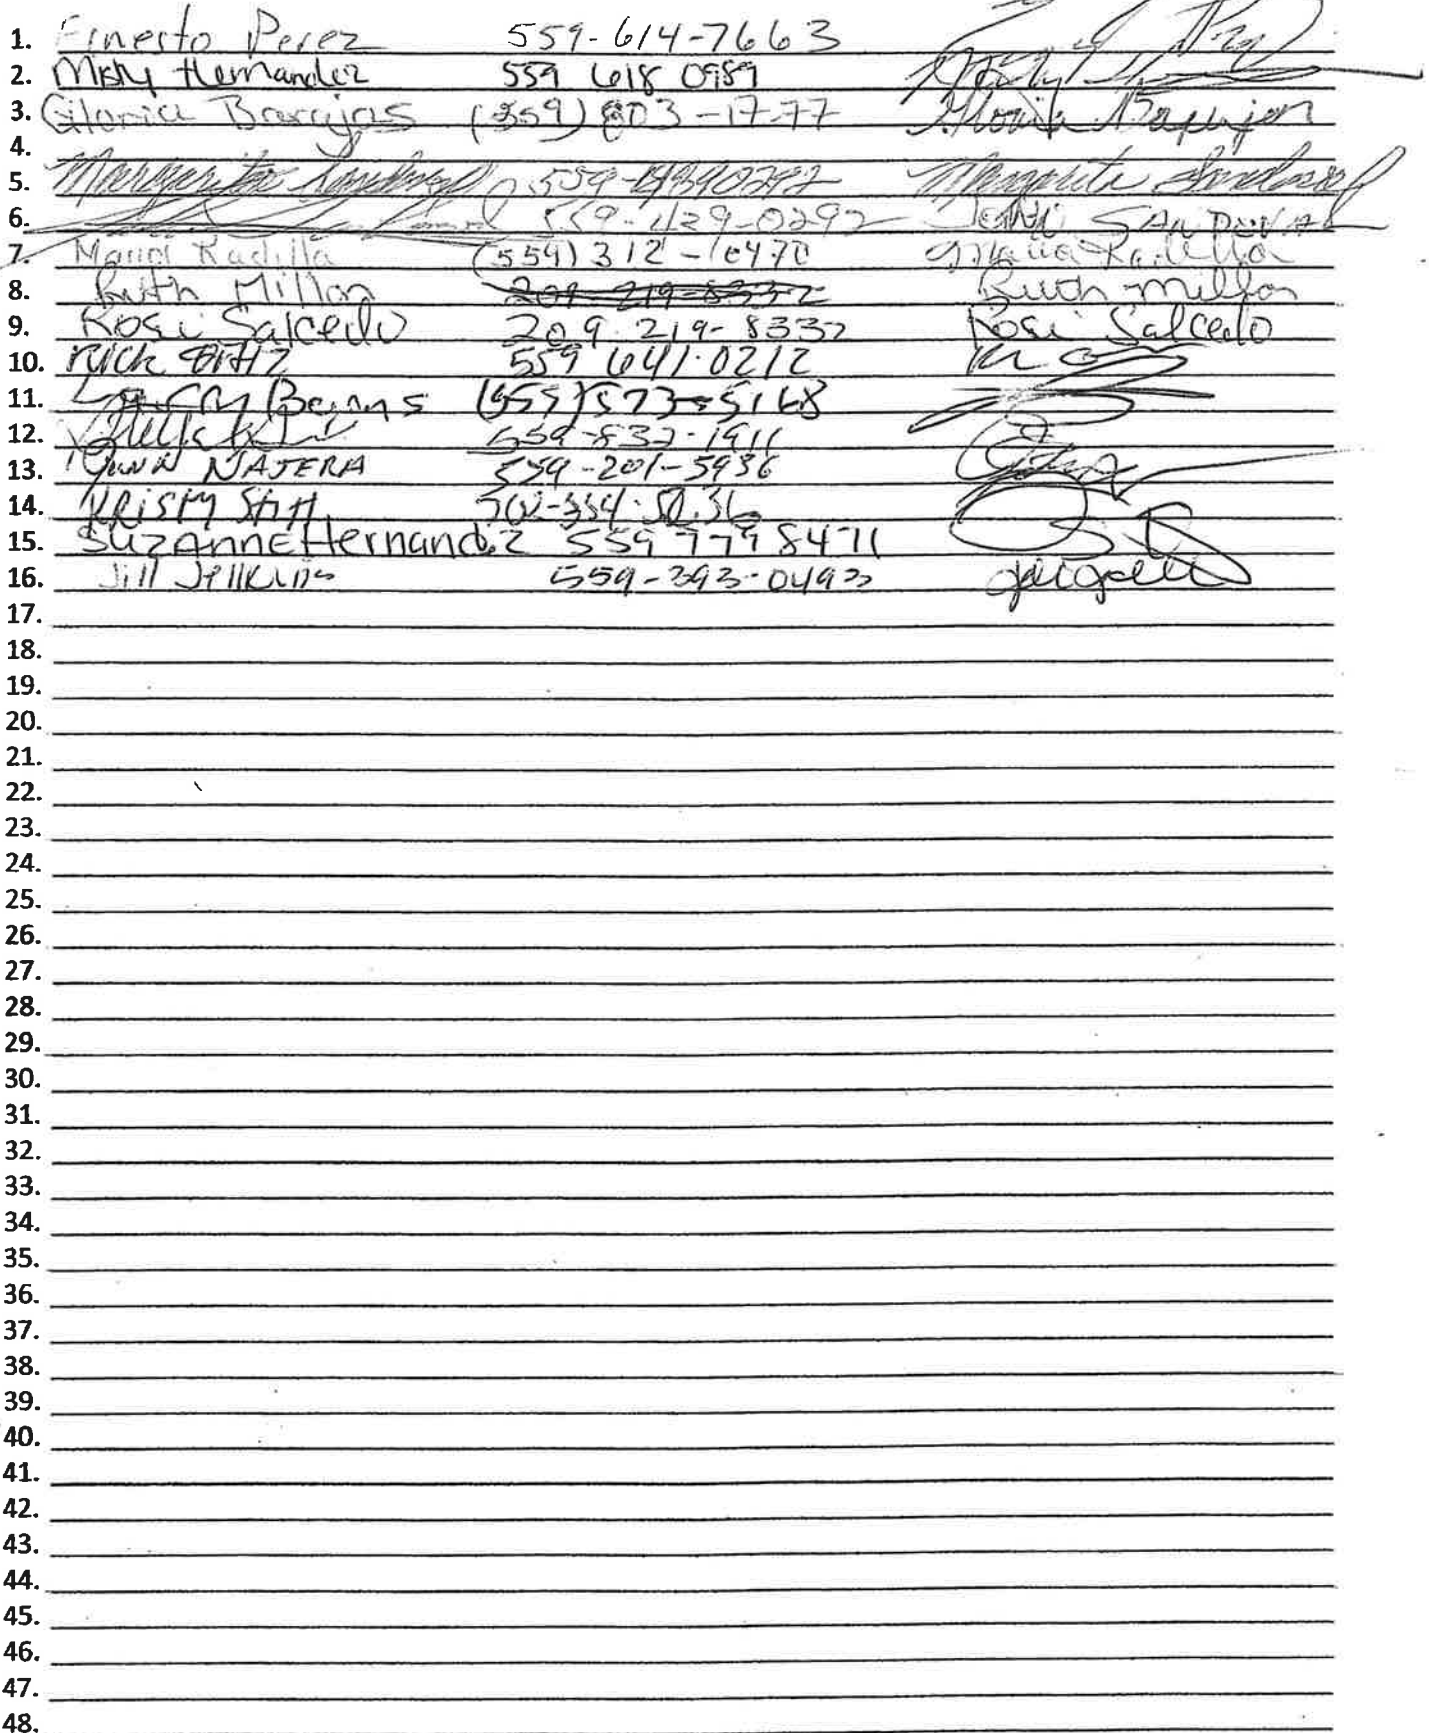 1. Ernesto Perez 559-614-7663
2. Misty Hernandez 559 618 0989
3. Gloria Barajas (559) 803-1777 Gloria Barajas
4.
5. Margarita Sandoval 559-4390292 Margarita Sandoval
6. 559-429-0292 SANDOVAL
7. Maria Radilla (559) 312-0470 Maria Radilla
8. Ruth Millan 209-219-8332 Ruth Millan
9. Rosi Salcedo 209-219-8332 Rosi Salcedo
10. Rick Ortiz 559 641-0212
11. (559) 573-5168
12. 559-832-1911
13. NAJERA 559-201-5936
14. Kristy
15. Suzanne Hernandez 559 779 8471
16. Jill 559-393-0493
17.
18.
19.
20.
21.
22.
23.
24.
25.
26.
27.
28.
29.
30.
31.
32.
33.
34.
35.
36.
37.
38.
39.
40.
41.
42.
43.
44.
45.
46.
47.
48.